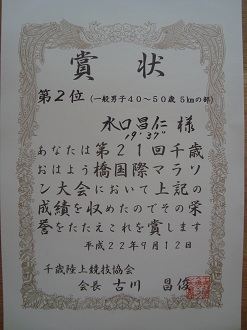 賞状
第2位 (一般男子40〜50歳 5kmの部)
水口昌仁 様
19'37"
あなたは第21回千歳
おはよう橋国際マラソ
ン大会において上記の
成績を収めたのでその栄
誉をたたえこれを賞します
平成22年9月12日
千歳陸上競技協会
会長 古川 昌俊